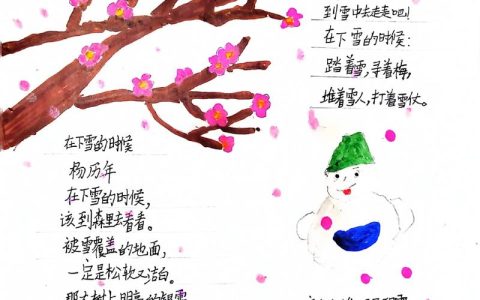 在下雪的时候
杨历年
在下雪的时候,
该到森里去看看。
被雪覆盖的地面,
一定是松软又洁白。
到雪中去走走吧!
在下雪的时候:
踏着雪,寻着梅,
堆着雪人,打着雪仗。